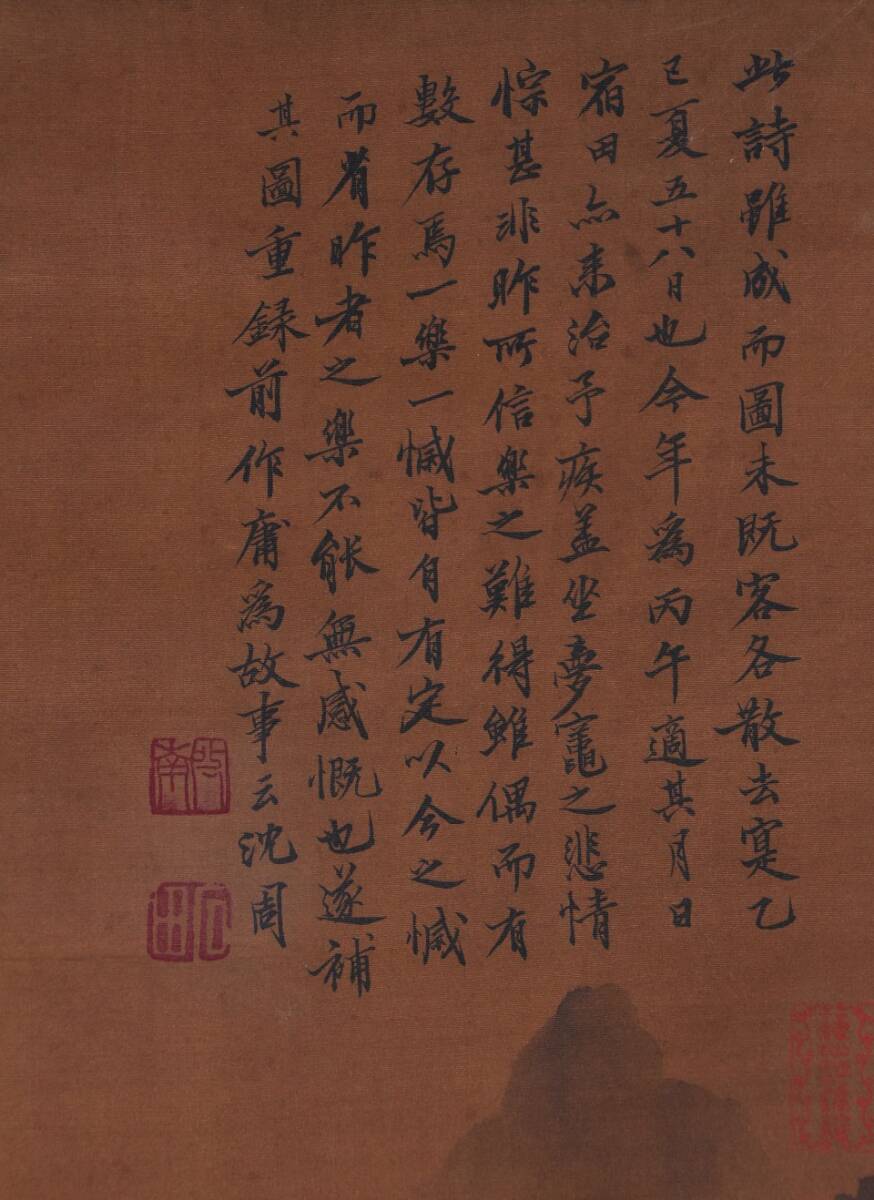 此詩雖成而圖未既客各散去寔乙
已夏五十八日也今年為丙午適其月日
宿田亦来治予疾盖坐夢竈之悲情
悰甚非昨所信樂之難得雖偶而有
數存焉一樂一慽皆自有定以今之慽
而省昨者之樂不能無感慨也遂補
其圖重録前作庸為故事云沈周
啓南